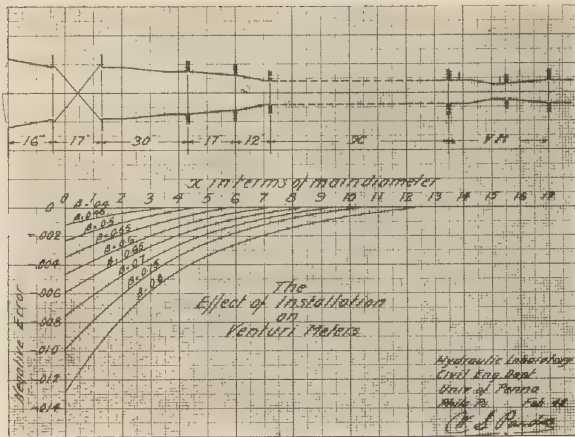 16" 17" 30" 17" 12" X VM
x in terms of main diameter
0 1 2 3 4 5 6 7 8 9 10 11 12 13 14 15 16 17
0
.002
.004
.006
.008
.010
.012
.014
Negative Error
β=0.4
β=0.45
β=0.5
β=0.55
β=0.6
β=0.65
β=0.7
β=0.75
β=0.8
The
Effect of Installation
on
Venturi Meters
Hydraulic Laboratory
Civil Eng Dept
Univ of Penna
Phila Pa Feb
W S Pardoe